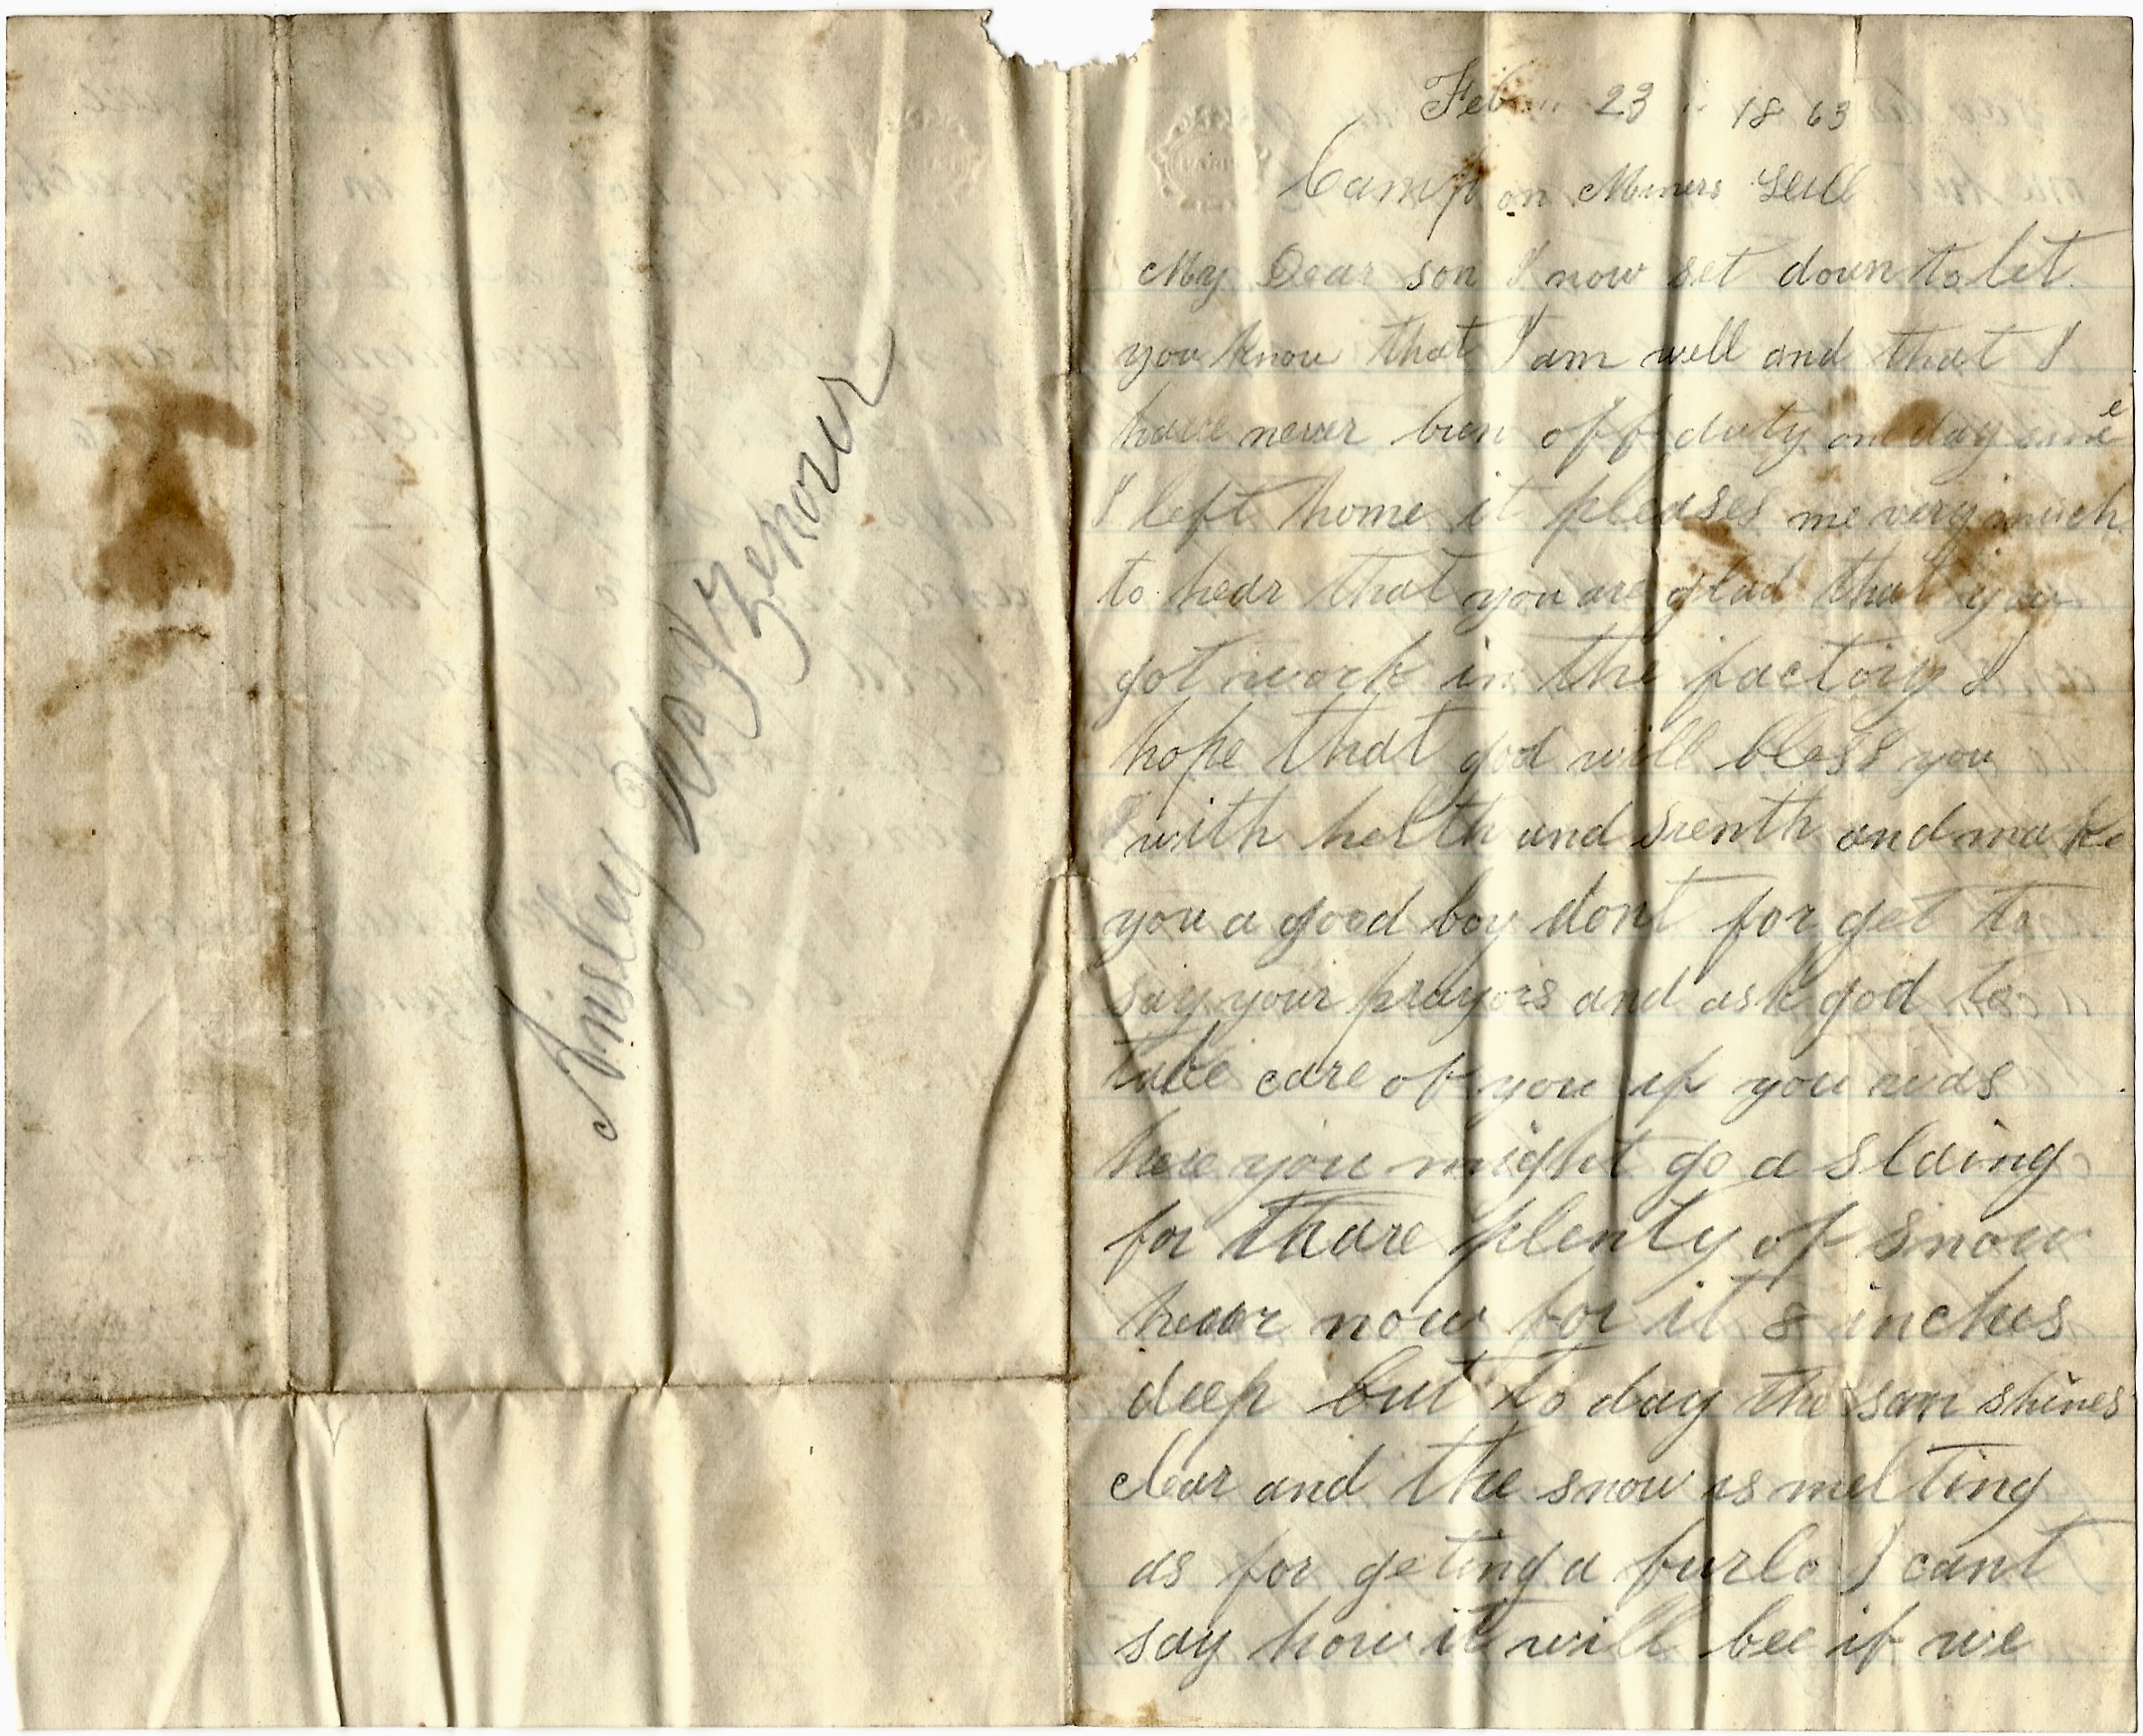 Ansley Zenour
Feb 23 1863
Camp on Miners Hill
My Dear son I now set down to let
you know that I am well and that I
have never bin off duty one day sinc e
I left home it pleases me very much
to hear that you are glad that you
got work in the factory I
hope that god will bless you
with helth and srenth and make
you a good boy dont for get to
say your prayors and ask god to
take care of you if you
here you might go a slaing
for thare plenty of snow
hear now for it 8 inches
deep but to day the son shines
clear and the snow is melting
as for geting a furlo I cant
say how it will bee if we